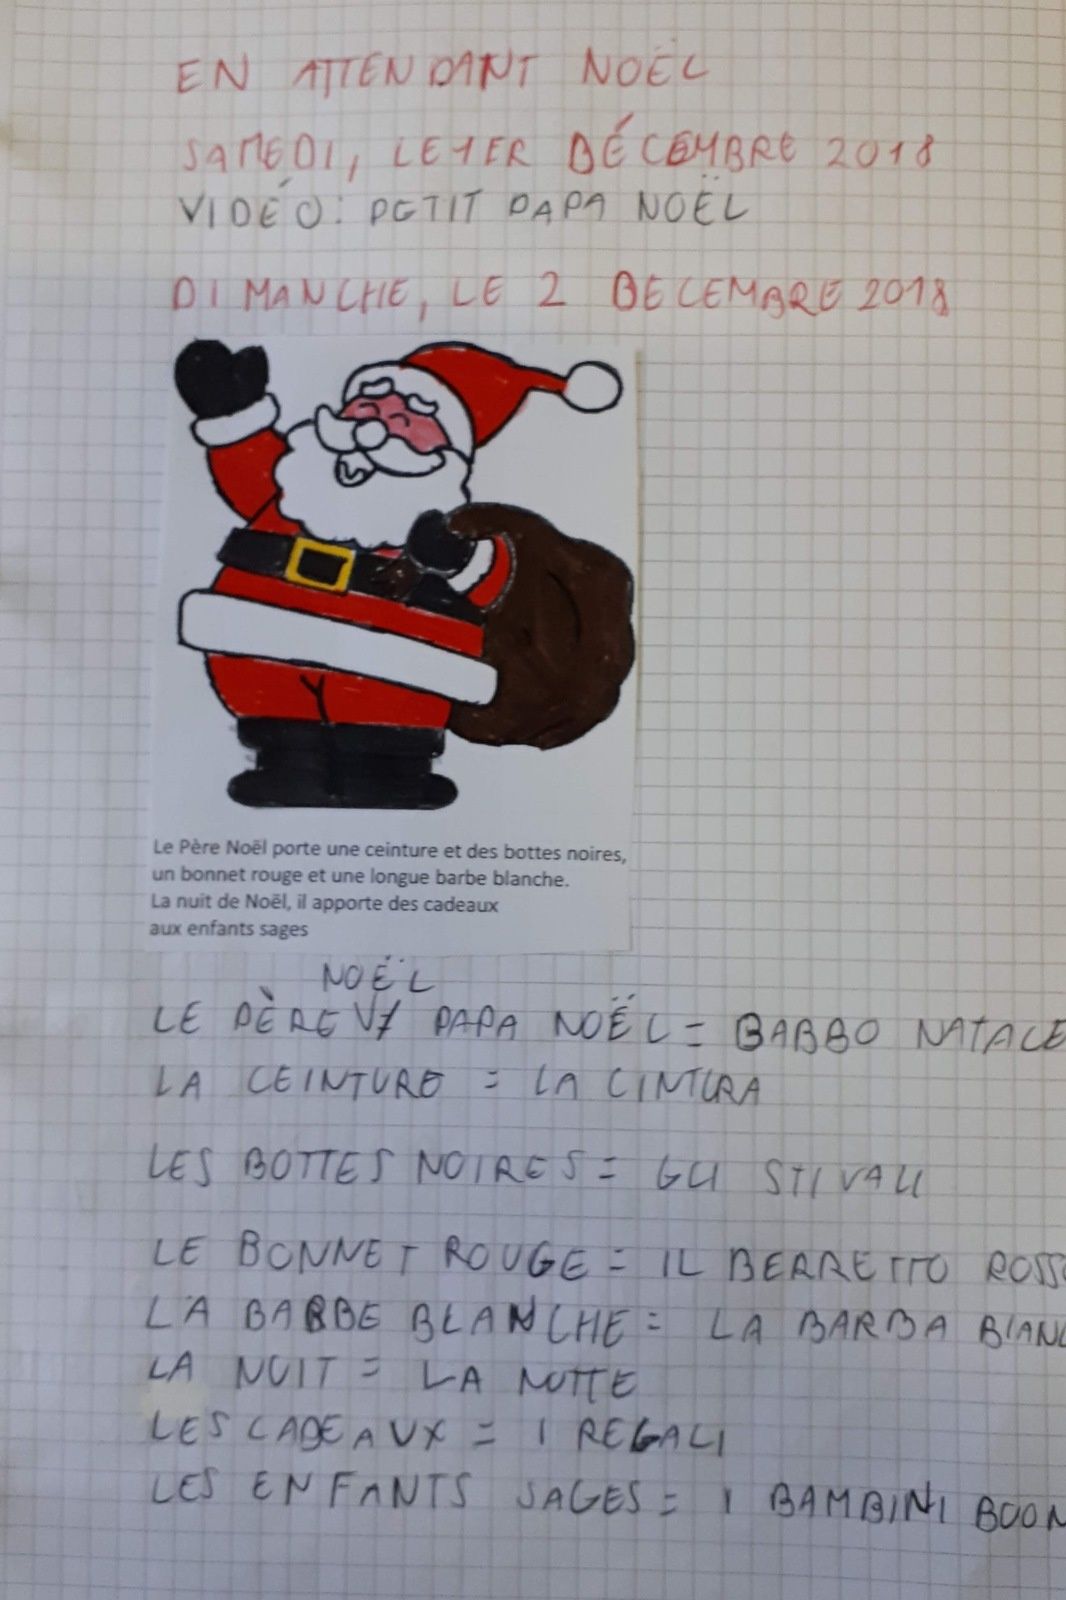 EN ATTENDANT NOËL
SAMEDI, LE 1ER DÉCEMBRE 2018
VIDÉO: PETIT PAPA NOËL
DIMANCHE, LE 2 DECEMBRE 2018
Le Père Noël porte une ceinture et des bottes noires,
un bonnet rouge et une longue barbe blanche.
La nuit de Noël, il apporte des cadeaux
aux enfants sages
NOËL
LE PÈRE / PAPA NOËL = BABBO NATALE
LA CEINTURE = LA CINTURA
LES BOTTES NOIRES = GLI STIVALI
LE BONNET ROUGE = IL BERRETTO ROSSO
LA BARBE BLANCHE = LA BARBA BIANC
LA NUIT = LA NOTTE
LES CADEAUX = I REGALI
LES ENFANTS SAGES = I BAMBINI BUON